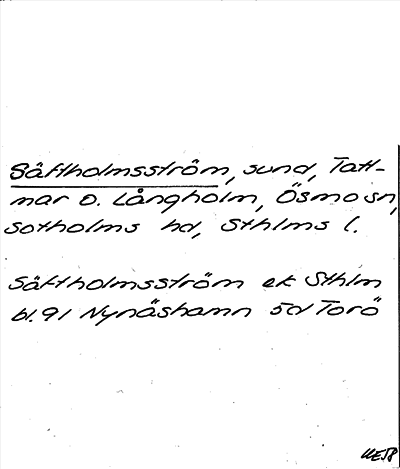 Säftholmsström, sund, Tatt-
mar O. Långholm, Ösmo sn,
Sotholms hd, Sthlms l.
Säftholmsström ek Sthlm
bl. 91 Nynäshamn 5d Torö